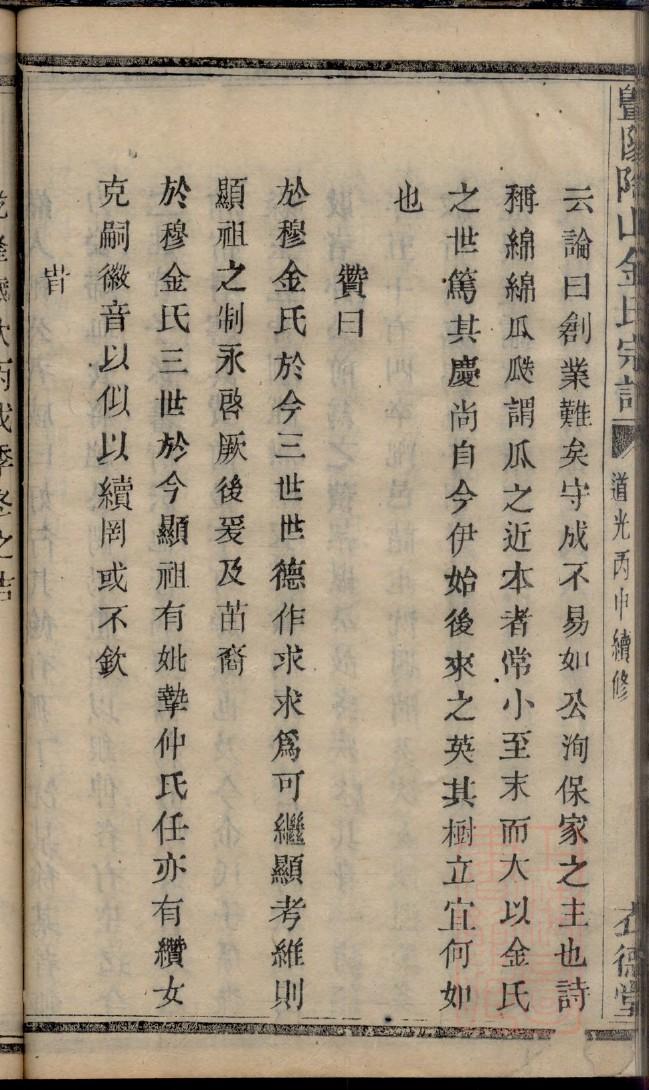 暨陽陶山金氏宗譜
道光丙申續修
衣德堂
云論曰創業難矣守成不易如公洵保家之主也詩
稱綿綿瓜瓞謂瓜之近本者常小至末而大以金氏
之世篤其慶尚自今伊始後來之英其樹立宜何如
也
贊曰
於穆金氏於今三世世德作求求爲可繼顯考維則
顯祖之制永啓厥後爰及苗裔
於穆金氏三世於今顯祖有妣摯仲氏任亦有纘女
克嗣徽音以似以續罔或不欽
旹